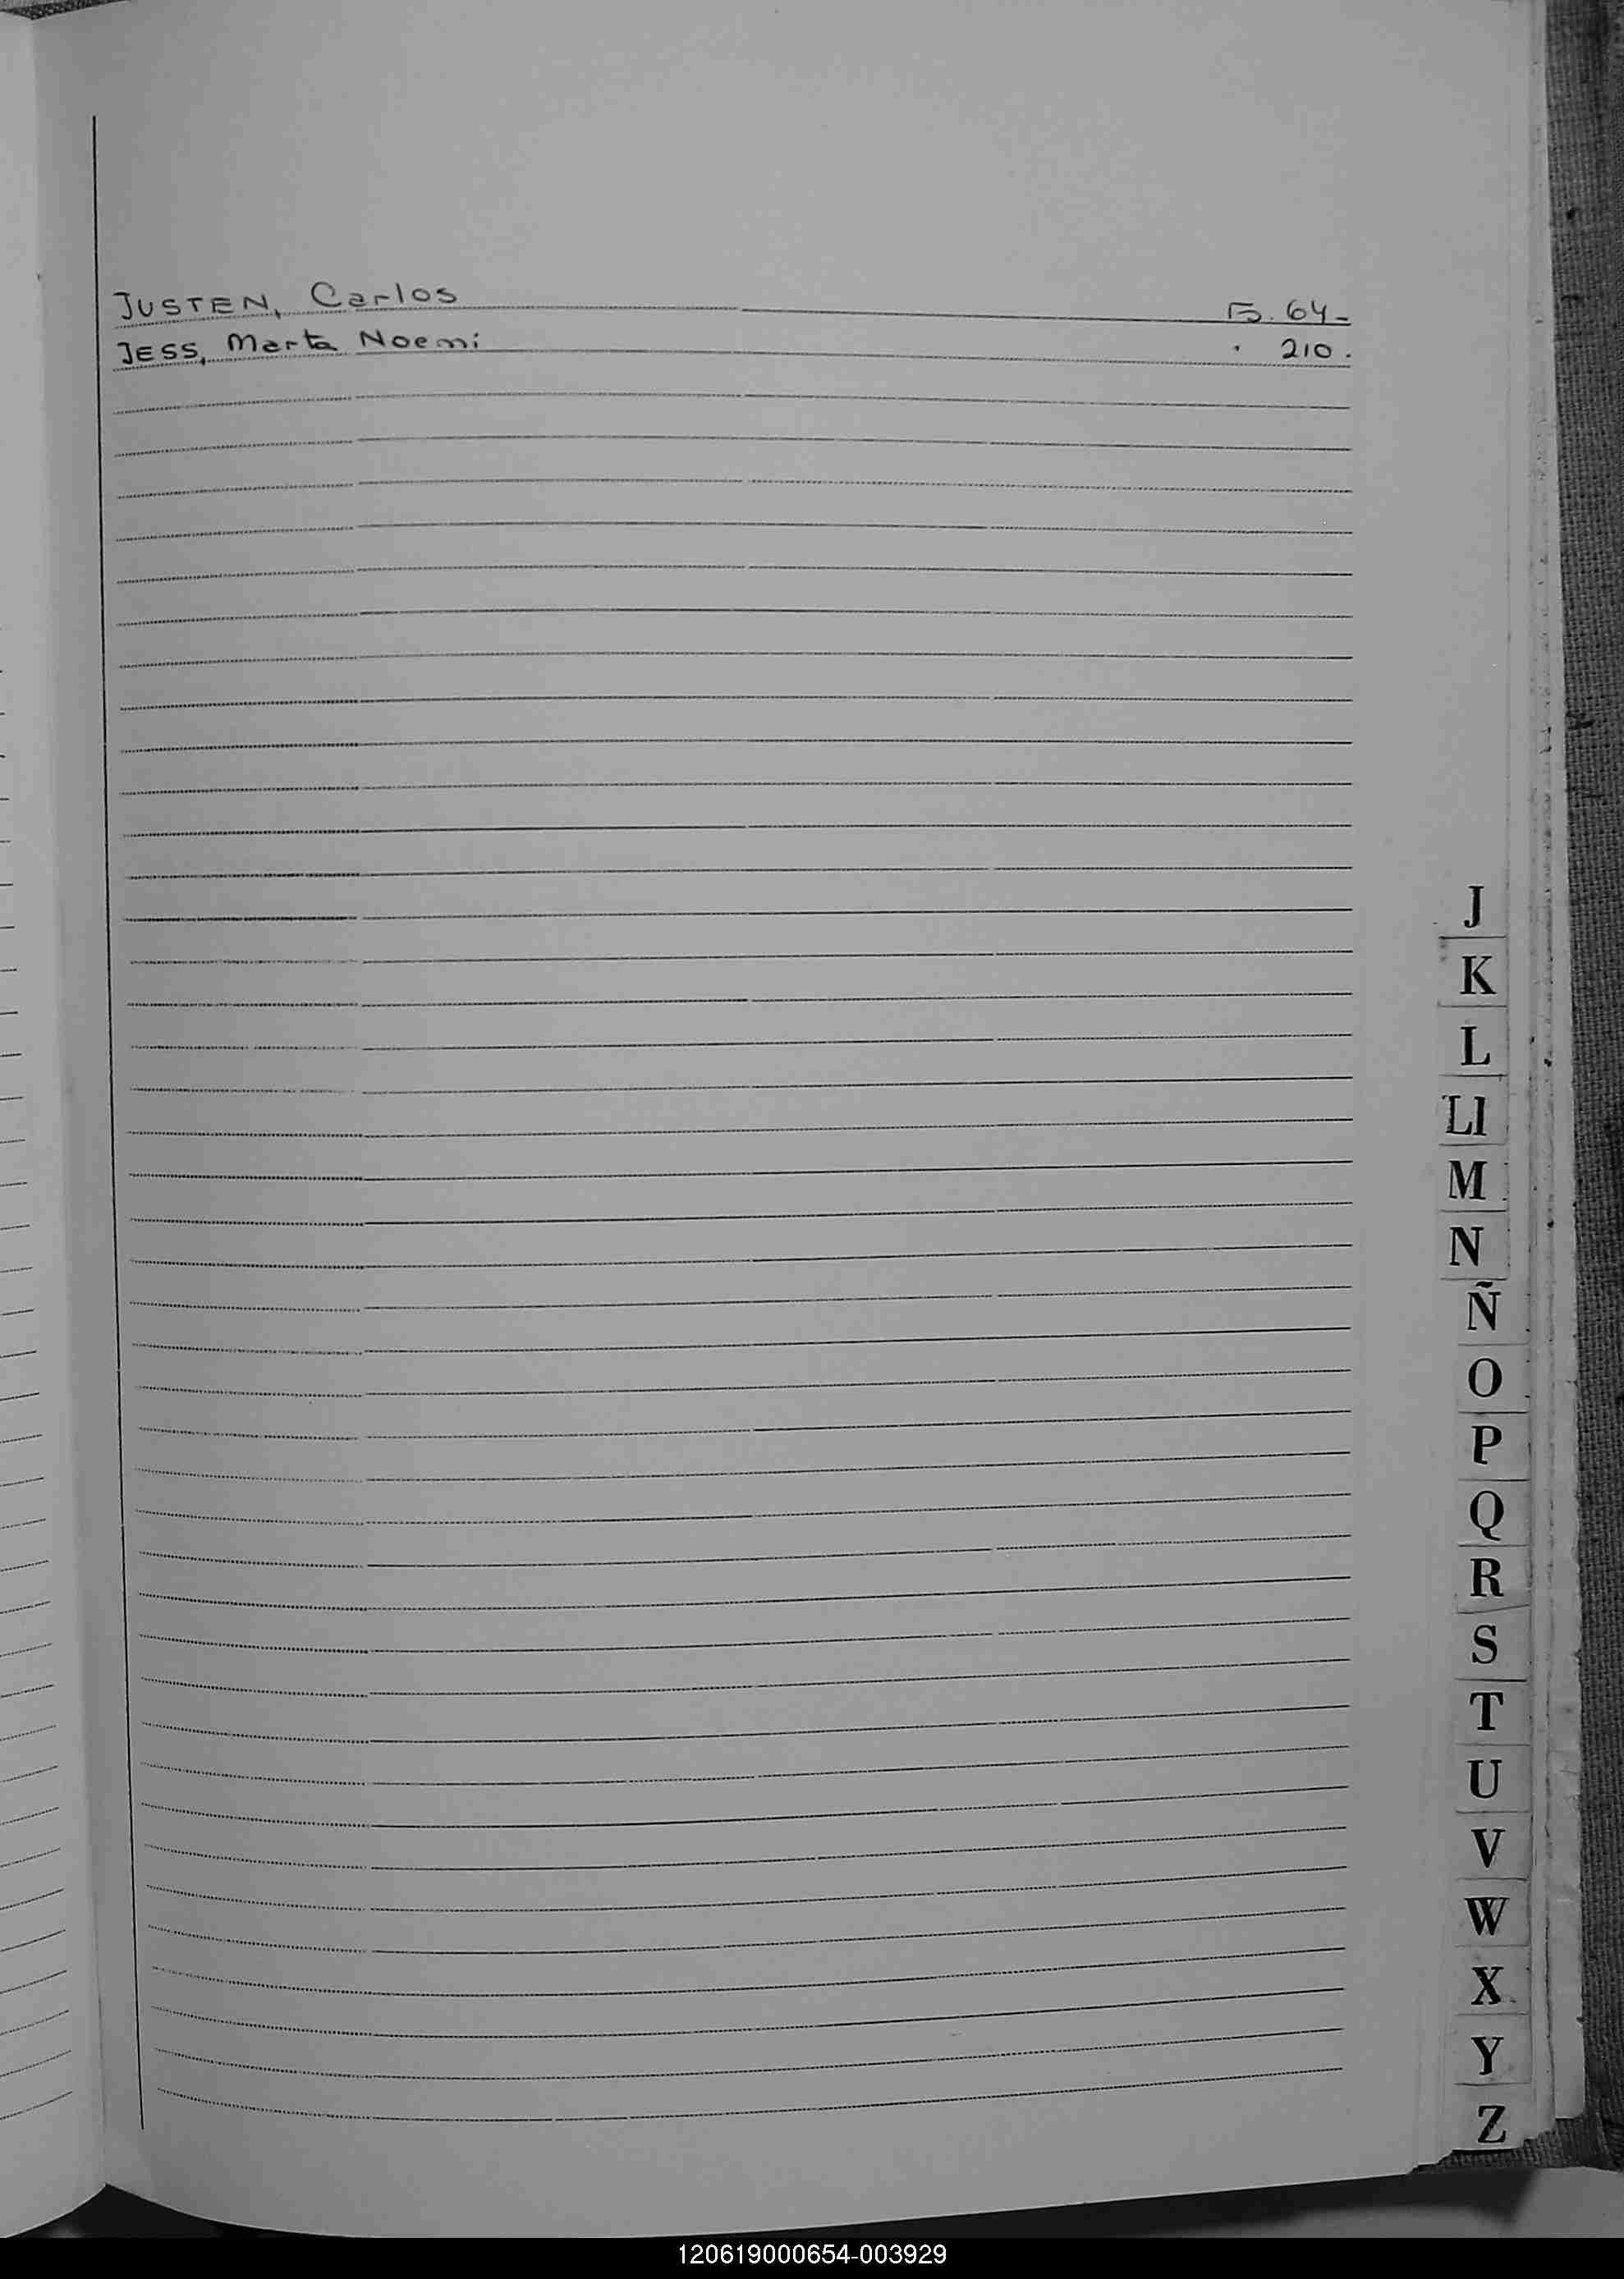 JUSTEN, Carlos 5. 64-
JESS, Marta Noemi " 210.
J
K
L
Ll
M
N
Ñ
O
P
Q
R
S
T
U
V
W
X
Y
Z
120619000654-003929